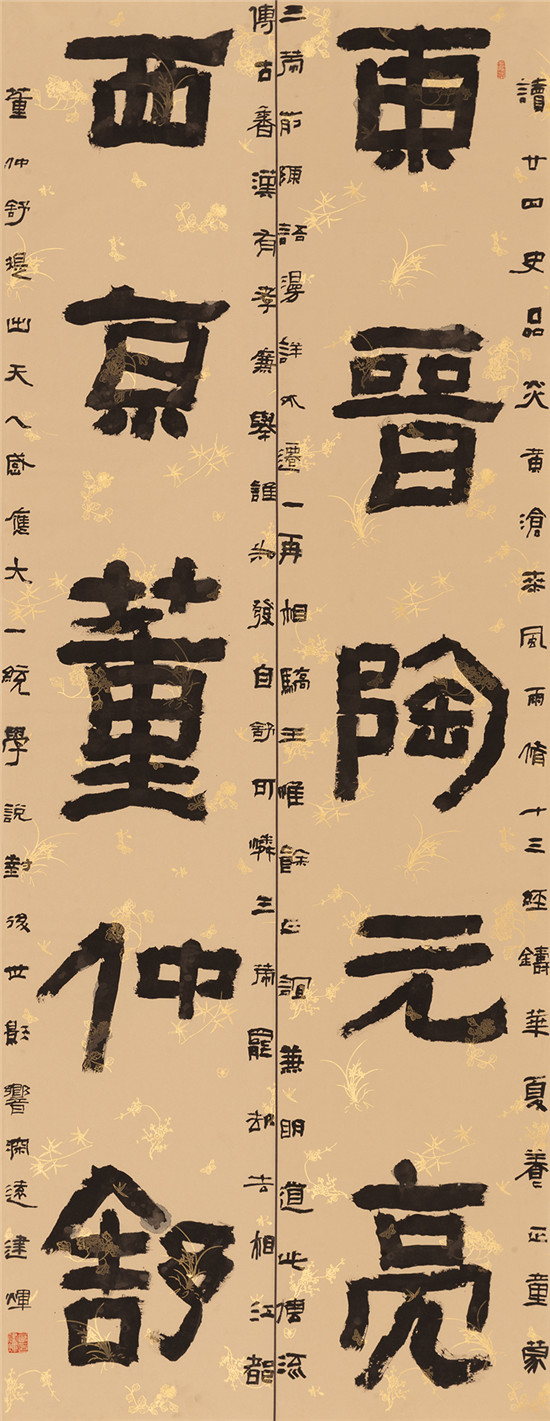 讀廿四史品炎黄滄桑風雨脩十三經鑄華夏養正童蒙
東晉陶元亮
三策前陳語漫詳不遷一再相驕王惟餘正誼兼明道此儒流
傳古香漢有孝廉舉誰為發自舒可憐三策罷却去相江都
西京董仲舒
董仲舒提出天人感應大一統學說對後世影響深遠建煇